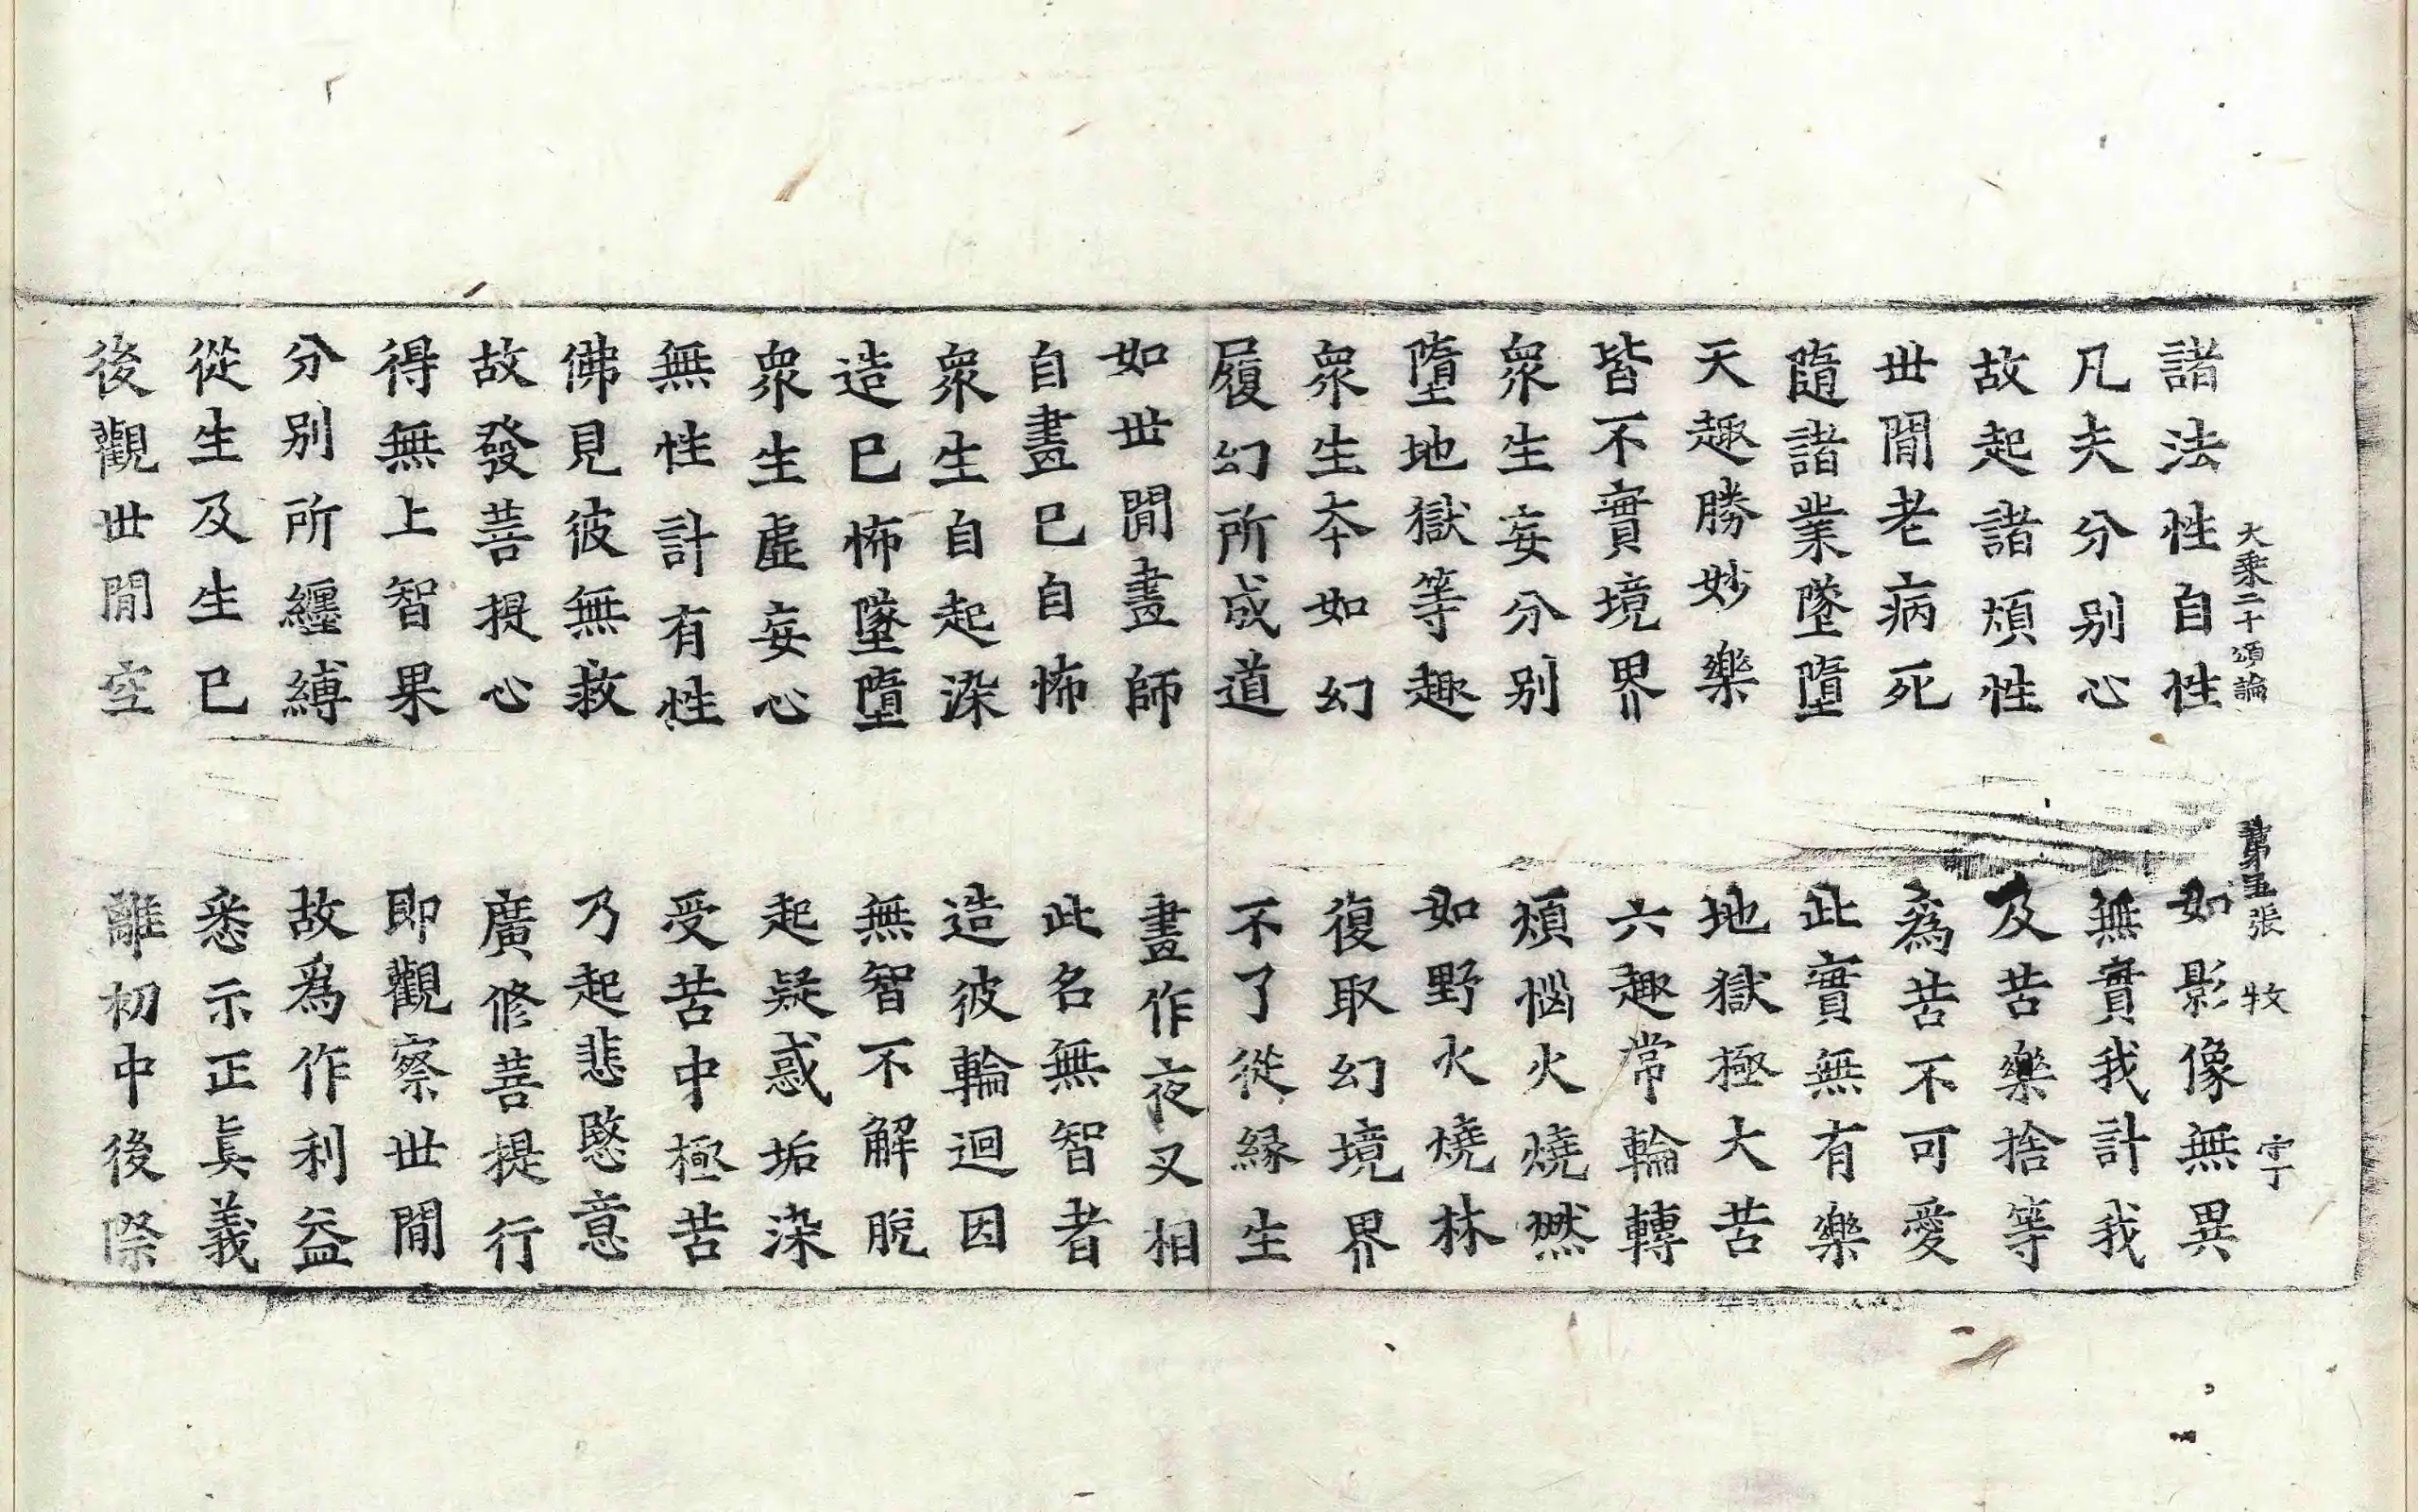 大乘二十頌論 第五張 牧
諸法性自性 如影像無異
凡夫分別心 無實我計我
故起諸煩性 及苦樂捨等
世間老病死 為苦不可愛
隨諸業墜墮 此實無有樂
天趣勝妙樂 地獄極大苦
皆不實境界 六趣常輪轉
衆生妄分別 煩惱火燒燃
墮地獄等趣 如野火燒林
衆生本如幻 復取幻境界
履幻所成道 不了從緣生
如世間畫師 畫作夜叉相
自畫已自怖 此名無智者
衆生自起染 造彼輪迴因
造已怖墜墮 無智不解脫
衆生虛妄心 起疑惑垢染
無性計有性 受苦中極苦
佛見彼無救 乃起悲愍意
故發菩提心 廣修菩提行
得無上智果 即觀察世間
分別所纏縛 故爲作利益
從生及生已 悉示正眞義
後觀世間空 離初中後際